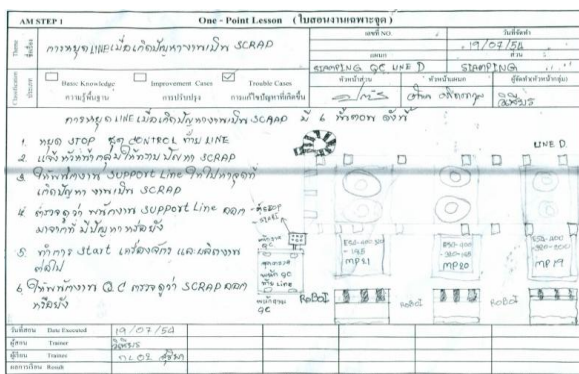 AM STEP 1
One - Point Lesson (ใบสอนงานเฉพาะจุด)
Theme
ชื่อเรื่อง
การหยุด LINE เมื่อเกิดปัญหางานเป็น SCRAP
เลขที่ NO.
วันที่จัดทำ
19/07/54
แผนก
ส่วน
STAMPING QC LINE D
STAMPING
Classification
ประเภท
Basic Knowledge
ความรู้พื้นฐาน
Improvement Cases
การปรับปรุง
Trouble Cases
การแก้ไขปัญหาที่เกิดขึ้น
หัวหน้าส่วน
หัวหน้าแผนก
ผู้จัดทำ(หัวหน้ากลุ่ม)
การหยุด LINE เมื่อเกิดปัญหางานเป็น SCRAP มี 6 ขั้นตอน ดังนี้
1. หยุด STOP ชุด CONTROL ท้าย LINE
2. แจ้งหัวหน้ากลุ่มให้ทราบปัญหา SCRAP
3. ให้พนักงาน SUPPORT Line ไปที่จุดที่
เกิดปัญหา งานเป็น SCRAP
4. ตรวจดูว่า พนักงาน SUPPORT Line ออก
มาจากที่ มีปัญหาหรือยัง
5. ทำการ Start เครื่องจักร และผลิตงาน
ต่อไป
6. ให้พนักงาน QC ตรวจดูว่า SCRAP ออก
หรือยัง
LINE D
STOP
START
พนักงาน
QC
ท้าย Line
พนักงาน
QC
MP21
MP20
MP19
ROBOT
ROBOT
ROBOT
วันที่สอน Date Executed
19/07/54
ผู้สอน Trainer
ผู้เรียน Trainee
ผลการเรียน Result